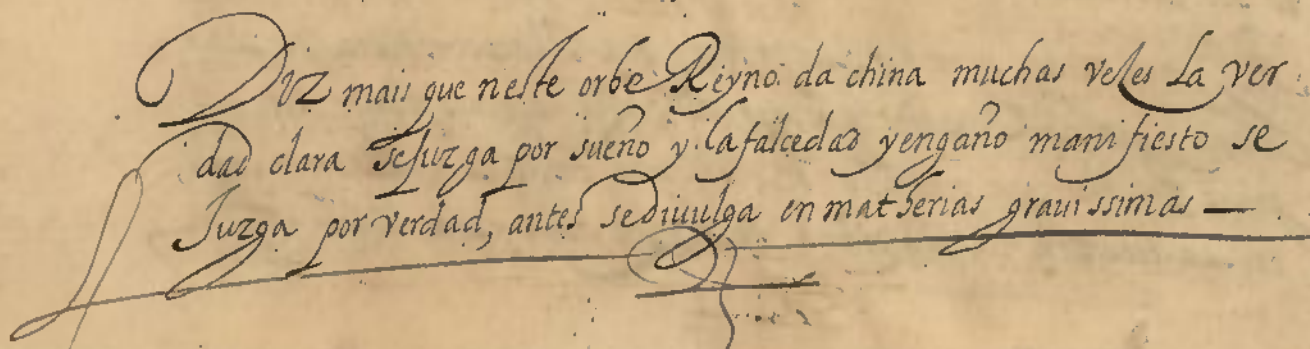 Diz mais que neste orbe Reyno da china muchas veses La ver
dad clara se juzga por sueño y la falcedad y engaño manifiesto se
Juzga por verdad, antes se diuulga en matherias grauissimas —